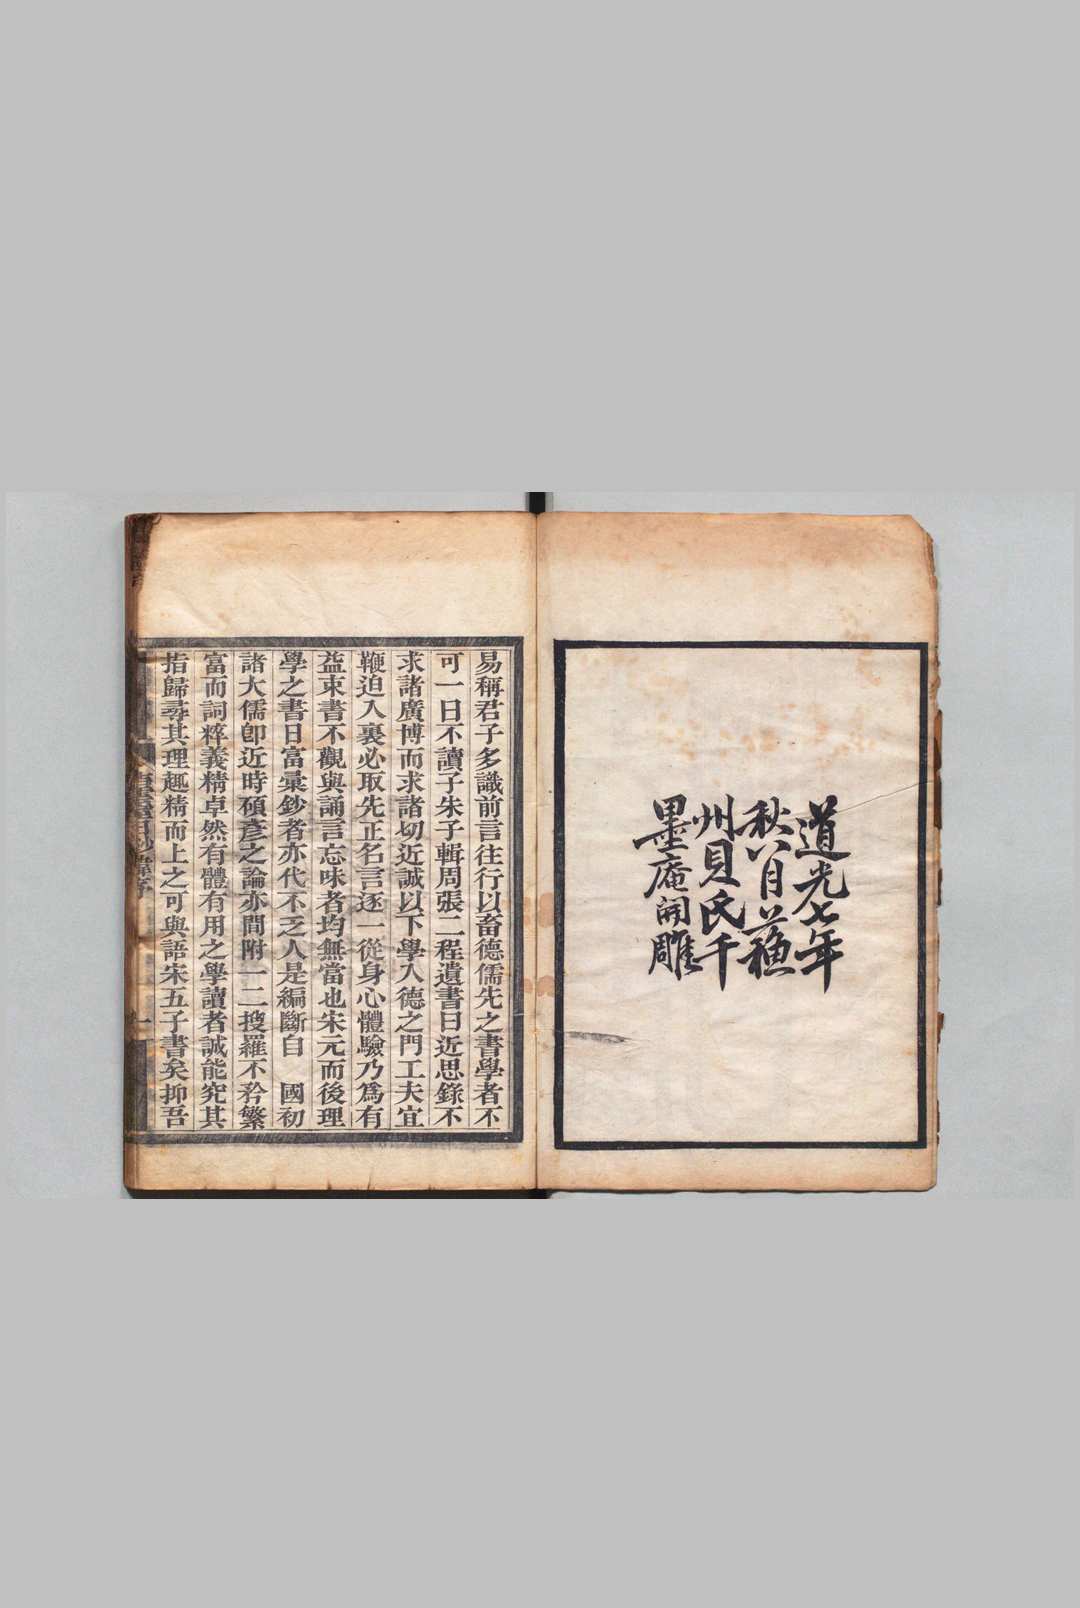 道光七年
秋八月蘇
州貝氏千
墨庵開雕
易稱君子多識前言往行以畜德儒先之書學者不
可一日不讀子朱子輯周張二程遺書曰近思錄不
求諸廣博而求諸切近誠以下學入德之門工夫宜
鞭迫入裏必取先正名言逐一從身心體驗乃爲有
益束書不觀與誦言忘味者均無當也宋元而後理
學之書日富彙鈔者亦代不乏人是編斷自　國初
諸大儒卽近時碩彥之論亦間附一二搜羅不矜繁
富而詞粹義精卓然有體有用之學讀者誠能究其
指歸尋其理趣精而上之可與語宋五子書矣抑吾